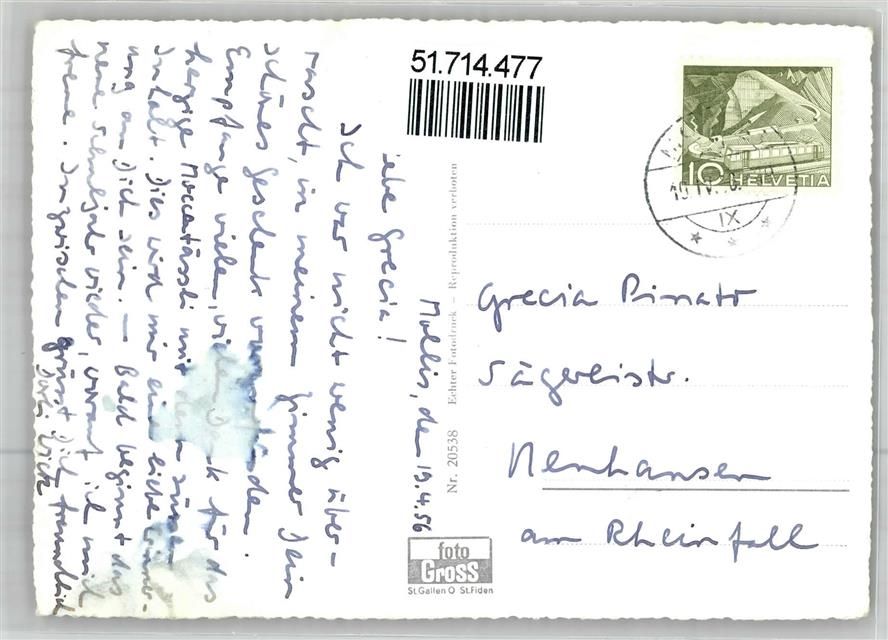 51.714.477
Mollis, den 19.4.56
Liebe Grecia!
Ich war nicht wenig über-
rascht, in meinem Zimmer Dein
schönes Geschenk vorzufinden.
Empfange vielen, vielen Dank für das
herzige Moccatässli mit dem süssen
Inhalt. Dies wird mir eine liebe Erinner-
ung an Dich sein. – Bald beginnt das
neue Schuljahr wieder, worauf ich mich
freue. Inzwischen grüsst Dich freundlich
Nr. 20538 Echter Fotodruck – Reproduktion verboten
foto
Gross
St. Gallen O St. Fiden
10 HELVETIA
IX
Grecia
Sägereistr.
Neuhausen
am Rheinfall